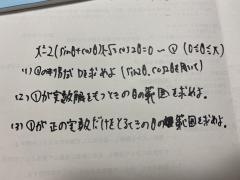 x²-2(sinθ+cosθ)x-√3cos2θ=0 …① (0≦θ≦π)
(1) ①の判別式Dを求めよ (sin2θ, cos2θを用いて)
(2) ①が実数解をもつときのθの範囲を求めよ。
(3) ①が正の実数だけをとるときのθの範囲を求めよ。